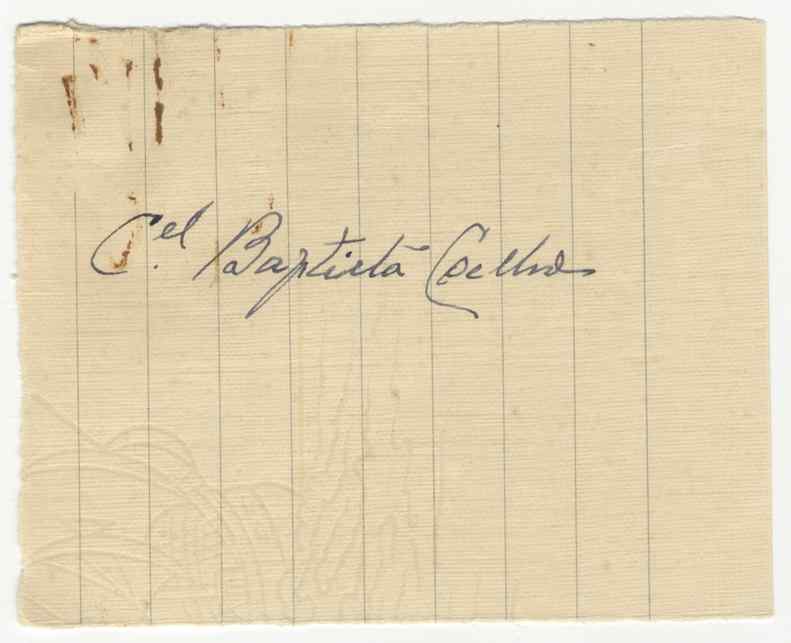 C.el Baptista Coelho